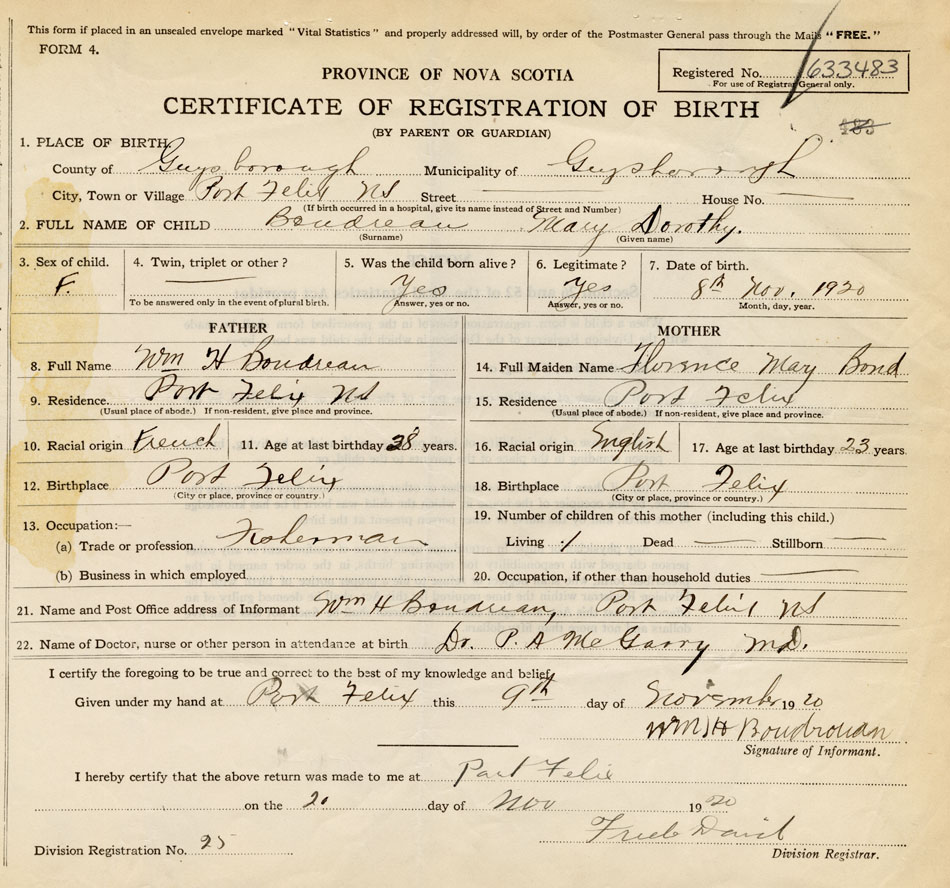 This form if placed in an unsealed envelope marked "Vital Statistics" and properly addressed will, by order of the Postmaster General pass through the Mails "FREE."
FORM 4.
Registered No. 633483
For use of Registrar General only.
PROVINCE OF NOVA SCOTIA
CERTIFICATE OF REGISTRATION OF BIRTH
(BY PARENT OR GUARDIAN)
1. PLACE OF BIRTH
County of Guysborough Municipality of Guysborough
City, Town or Village Port Felix NS Street — House No. —
(If birth occurred in a hospital, give its name instead of Street and Number)
2. FULL NAME OF CHILD Boudreau Mary Dorothy.
(Surname) (Given name)
3. Sex of child. 4. Twin, triplet or other? 5. Was the child born alive? 6. Legitimate? 7. Date of birth.
F. — Yes Yes 8th Nov. 1920
To be answered only in the event of plural birth. Answer, yes or no. Answer, yes or no. Month, day, year.
FATHER
8. Full Name Wm H Boudreau
9. Residence. Port Felix NS
(Usual place of abode.) If non-resident, give place and province.
10. Racial origin French 11. Age at last birthday 28 years.
12. Birthplace Port Felix
(City or place, province or country.)
13. Occupation:—
(a) Trade or profession Fisherman
(b) Business in which employed
MOTHER
14. Full Maiden Name Florence Mary Bond
15. Residence Port Felix
(Usual place of abode.) If non-resident, give place and province.
16. Racial origin English 17. Age at last birthday 23 years.
18. Birthplace Port Felix
(City or place, province or country.)
19. Number of children of this mother (including this child.)
Living 1 Dead — Stillborn —
20. Occupation, if other than household duties —
21. Name and Post Office address of Informant Wm H Boudreau, Port Felix NS
22. Name of Doctor, nurse or other person in attendance at birth Dr. P. A McGarry MD.
I certify the foregoing to be true and correct to the best of my knowledge and belief.
Given under my hand at Port Felix this 9th day of November 1920
Wm H Boudrouau
Signature of Informant.
I hereby certify that the above return was made to me at Port Felix
on the 20 day of Nov 1920
David
Division Registrar.
Division Registration No. 25